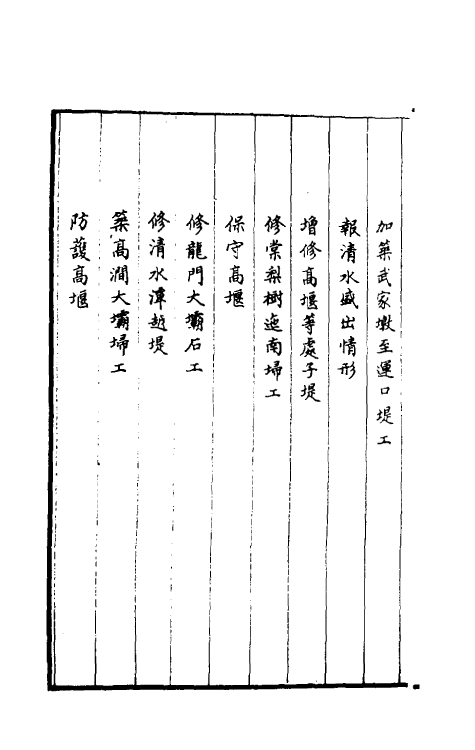 加築武家墩至運口堤工
報清水盛出情形
增修高堰等處子堤
修棠梨樹迤南埽工
保守高堰
修龍門大壩石工
修清水潭越堤
築高澗大壩埽工
防護高堰